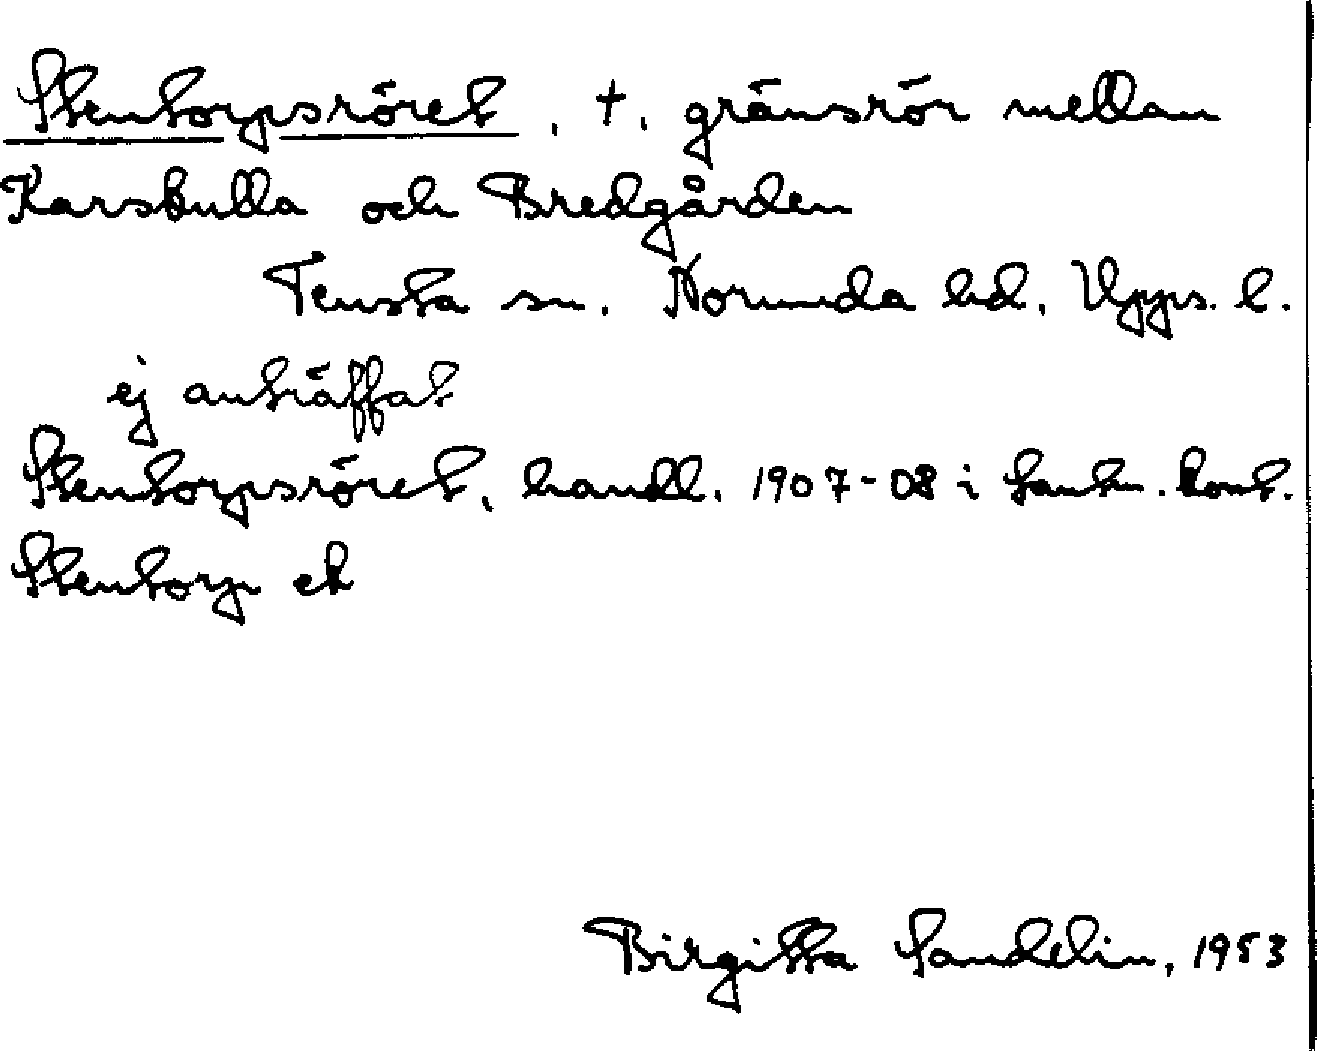 Stentorpsröret, †. gränsrör mellan
Karsbulla och Bredgården
Tensta sn. Norunda hd. Upps. l.
ej anträffat
Stentorpsröret, handl. 1907-08 i lantm. kont.
Stentorp ek
Birgitta Sandelin, 1953